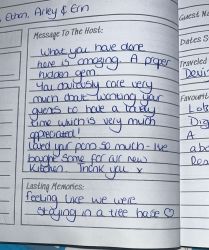 Ethan, Arley & Erin
Message To The Host:
What you have done
here is amazing. A proper
hidden gem.
You obviously care very
much about wanting your
guests to have a lovely
time which is very much
appreciated!
Loved your pens so much - we
bought some for our new
kitchen. Thank you x
Lasting Memories:
feeling like we were
staying in a tree house
Guest Na
Dates S
Traveled
Favourit
A